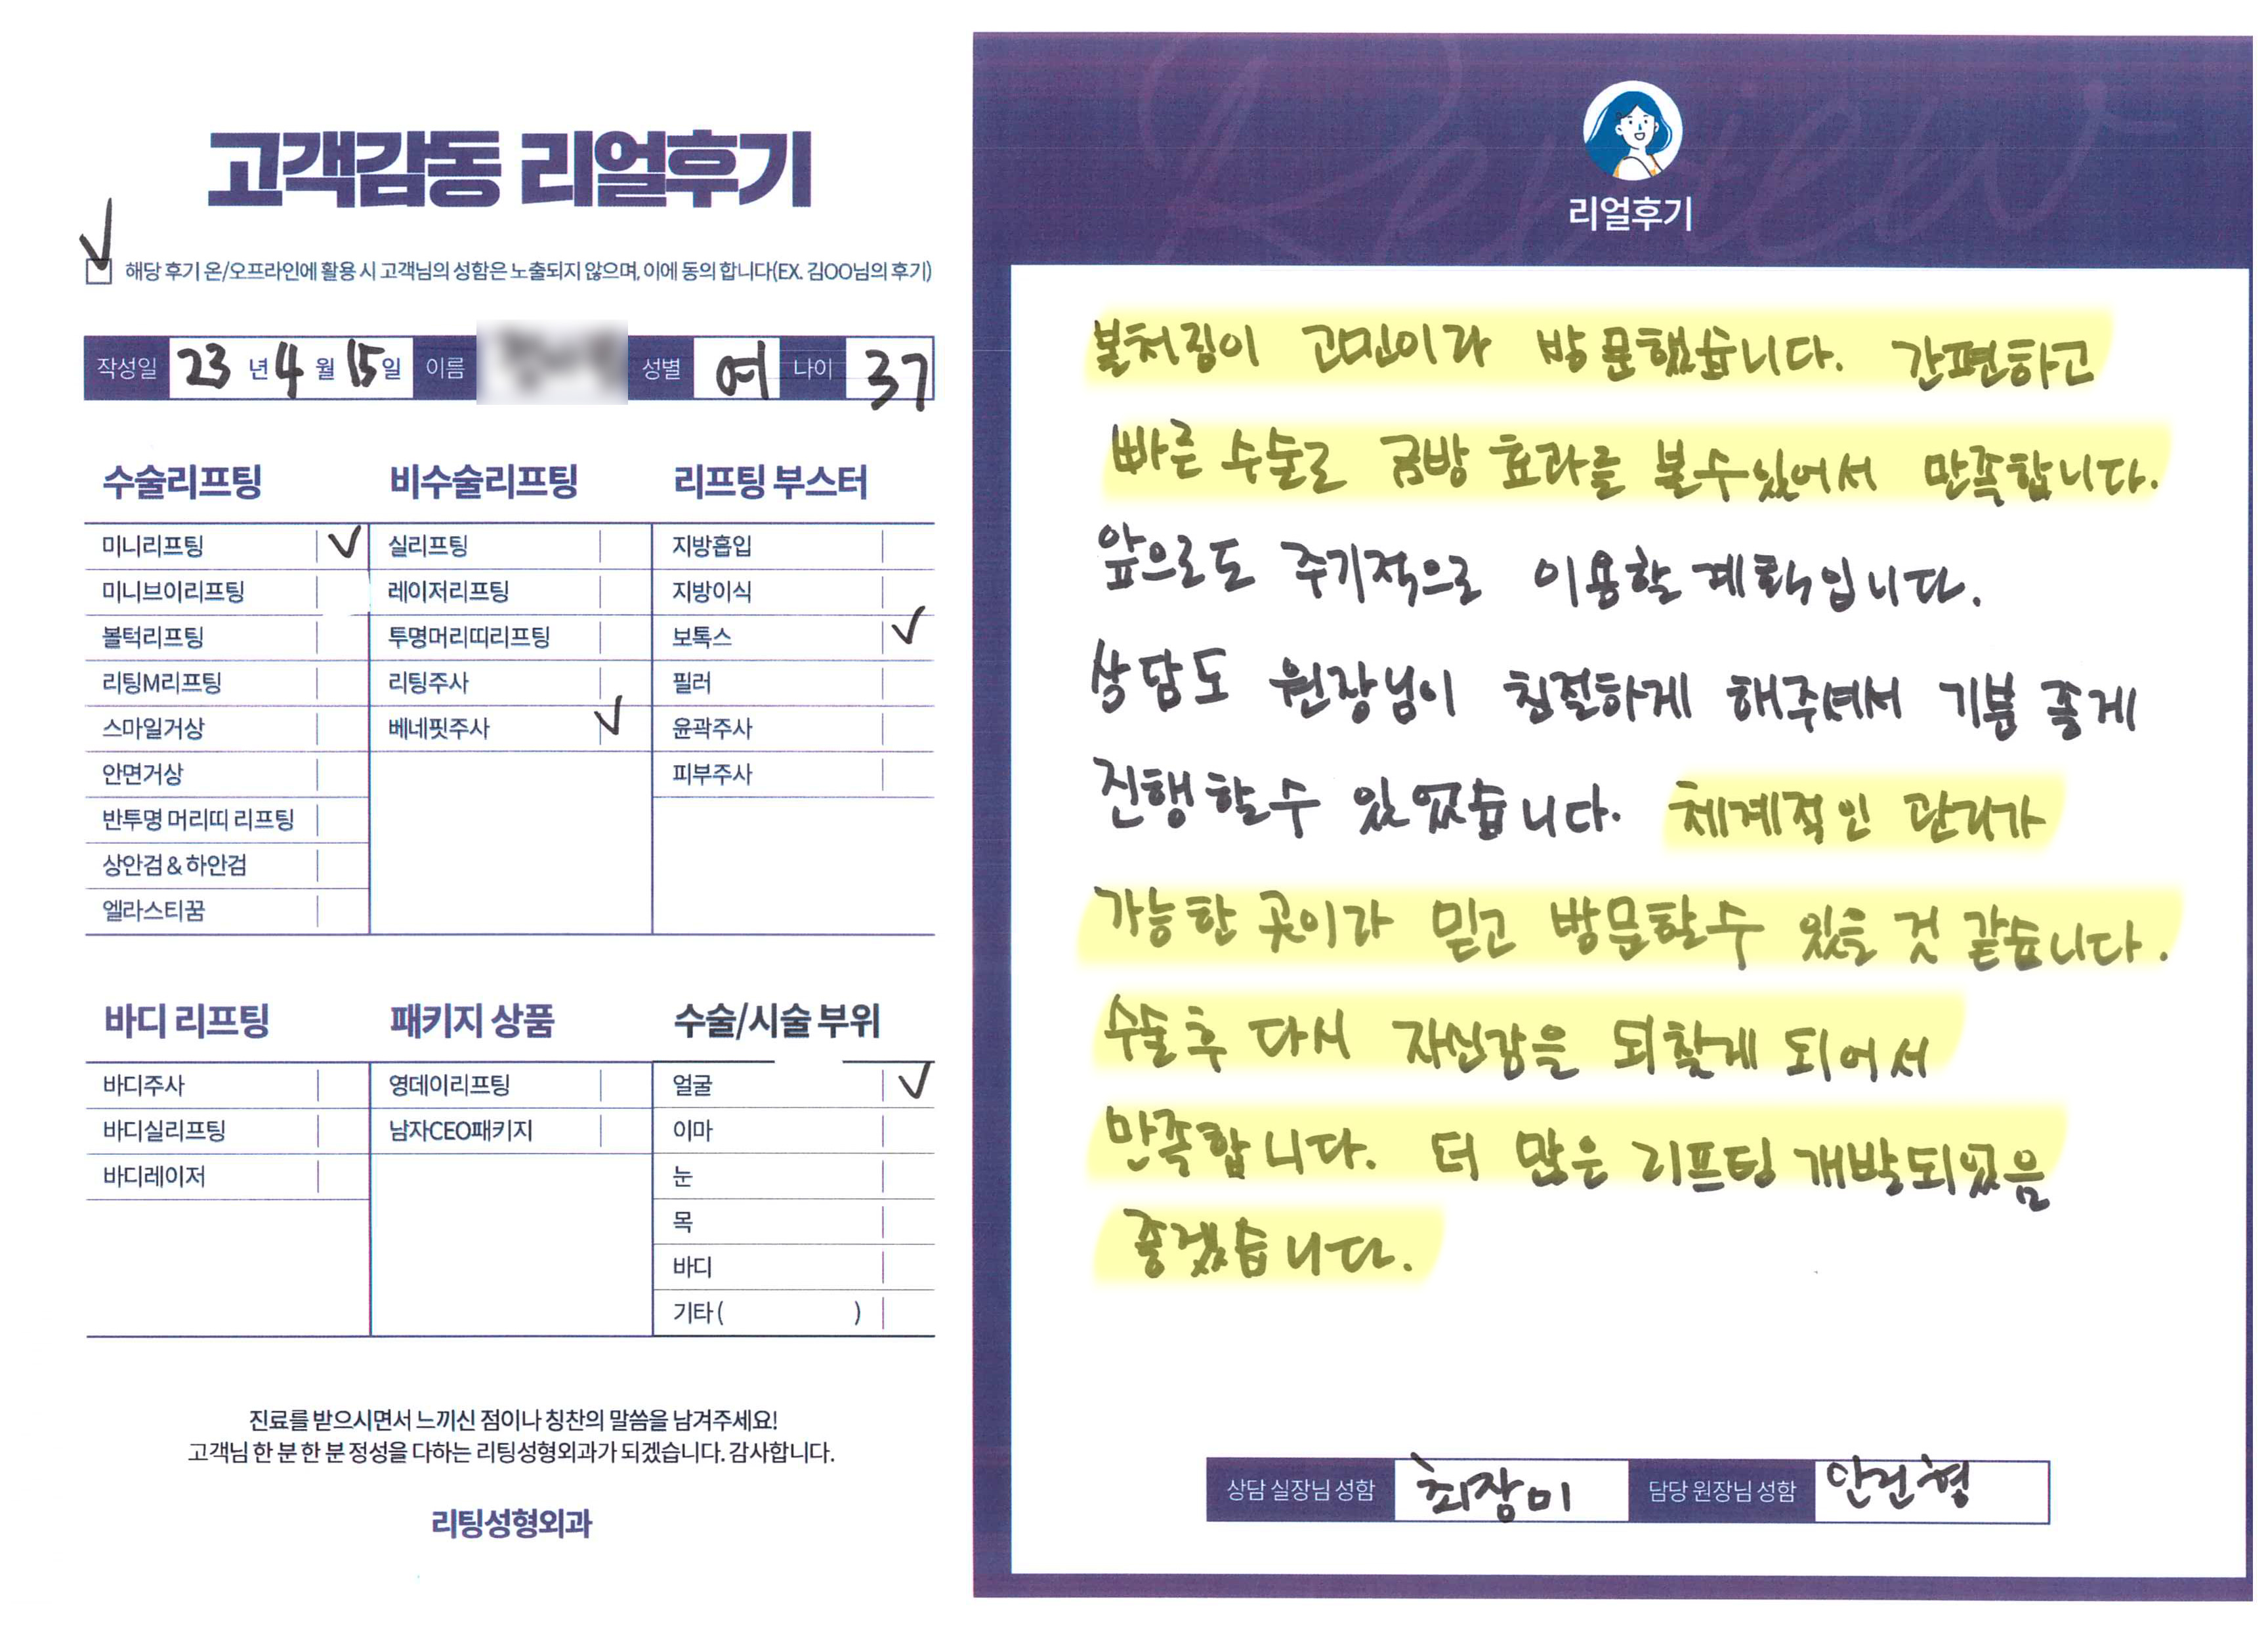 고객감동 리얼후기
해당 후기 온/오프라인에 활용 시 고객님의 성함은 노출되지 않으며, 이에 동의 합니다(EX. 김OO님의 후기)
작성일 23 년 4 월 15 일 이름 성별 여 나이 37
수술리프팅 비수술리프팅 리프팅 부스터
미니리프팅 실리프팅 지방흡입
미니브이리프팅 레이저리프팅 지방이식
볼턱리프팅 투명머리띠리프팅 보톡스
리팅M리프팅 리팅주사 필러
스마일거상 베네핏주사 윤곽주사
안면거상 피부주사
반투명 머리띠 리프팅
상안검 & 하안검
엘라스티꿈
바디 리프팅 패키지 상품 수술/시술 부위
바디주사 영데이리프팅 얼굴
바디실리프팅 남자CEO패키지 이마
바디레이저 눈
목
바디
기타 ( )
진료를 받으시면서 느끼신 점이나 칭찬의 말씀을 남겨주세요!
고객님 한 분 한 분 정성을 다하는 리팅성형외과가 되겠습니다. 감사합니다.
리팅성형외과
Review
리얼후기
볼처짐이 고민이라 방문했습니다. 간편하고
빠른 수술로 금방 효과를 볼수있어서 만족합니다.
앞으로도 주기적으로 이용할 계획입니다.
상담도 원장님이 친절하게 해주셔서 기분 좋게
진행할수 있었습니다. 체계적인 관리가
가능한 곳이라 믿고 방문할수 있을 것 같습니다.
수술후 다시 자신감을 되찾게 되어서
만족합니다. 더 많은 리프팅 개발되었음
좋겠습니다.
상담 실장님 성함 최장미 담당 원장님 성함 안건형